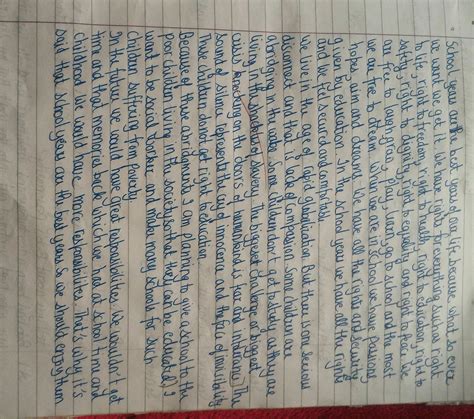 School years are the best years of our life, because what so ever
we want we get it. We have rights for everything such as right
to life, right to freedom, right to health, right to education, right to
safety, right to dignity, right to equality and right to peace. We
are free to wath, pray, play, learn, go to school and the most
we are free to dream. When we are in school we have passions,
hopes, aim and dreams. We have all the rights and security
given by education. In the school years we have all the rights
and we feel secured and completely
We live in the age of rapid globalization. But there is one serious
disconnect and that is lack of compassion. Some children are
abridging in the water, some children don't got to study as they are
living in the shadows in slavery. The biggest challenge or biggest
crisis knocking on the doors of humankind is fear and intolerance. The
sound of silence represents the cry of innocence and the face of invisibility
These children donot get right to education.
Because of these arguments I am planning to give a school to the
poor children living in the society so that they can be educated. I
want to be social worker and make many schools for such
children suffering from poverty.
In the future we would have great responsibilities. We wouldn't get
time and that memories back which we had at school time and
childhood. We would have more responsibilities. That's why it's
said that school years are the best years so we should enjoy them